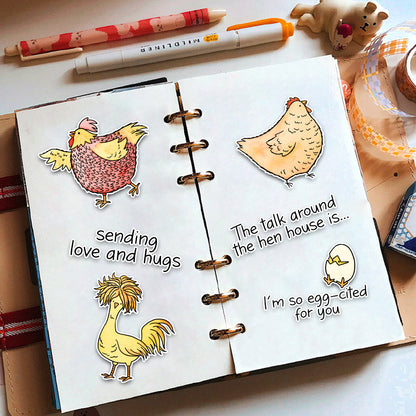 MILDLINER
sending
love and hugs
The talk around
the hen house is...
I'm so egg-cited
for you